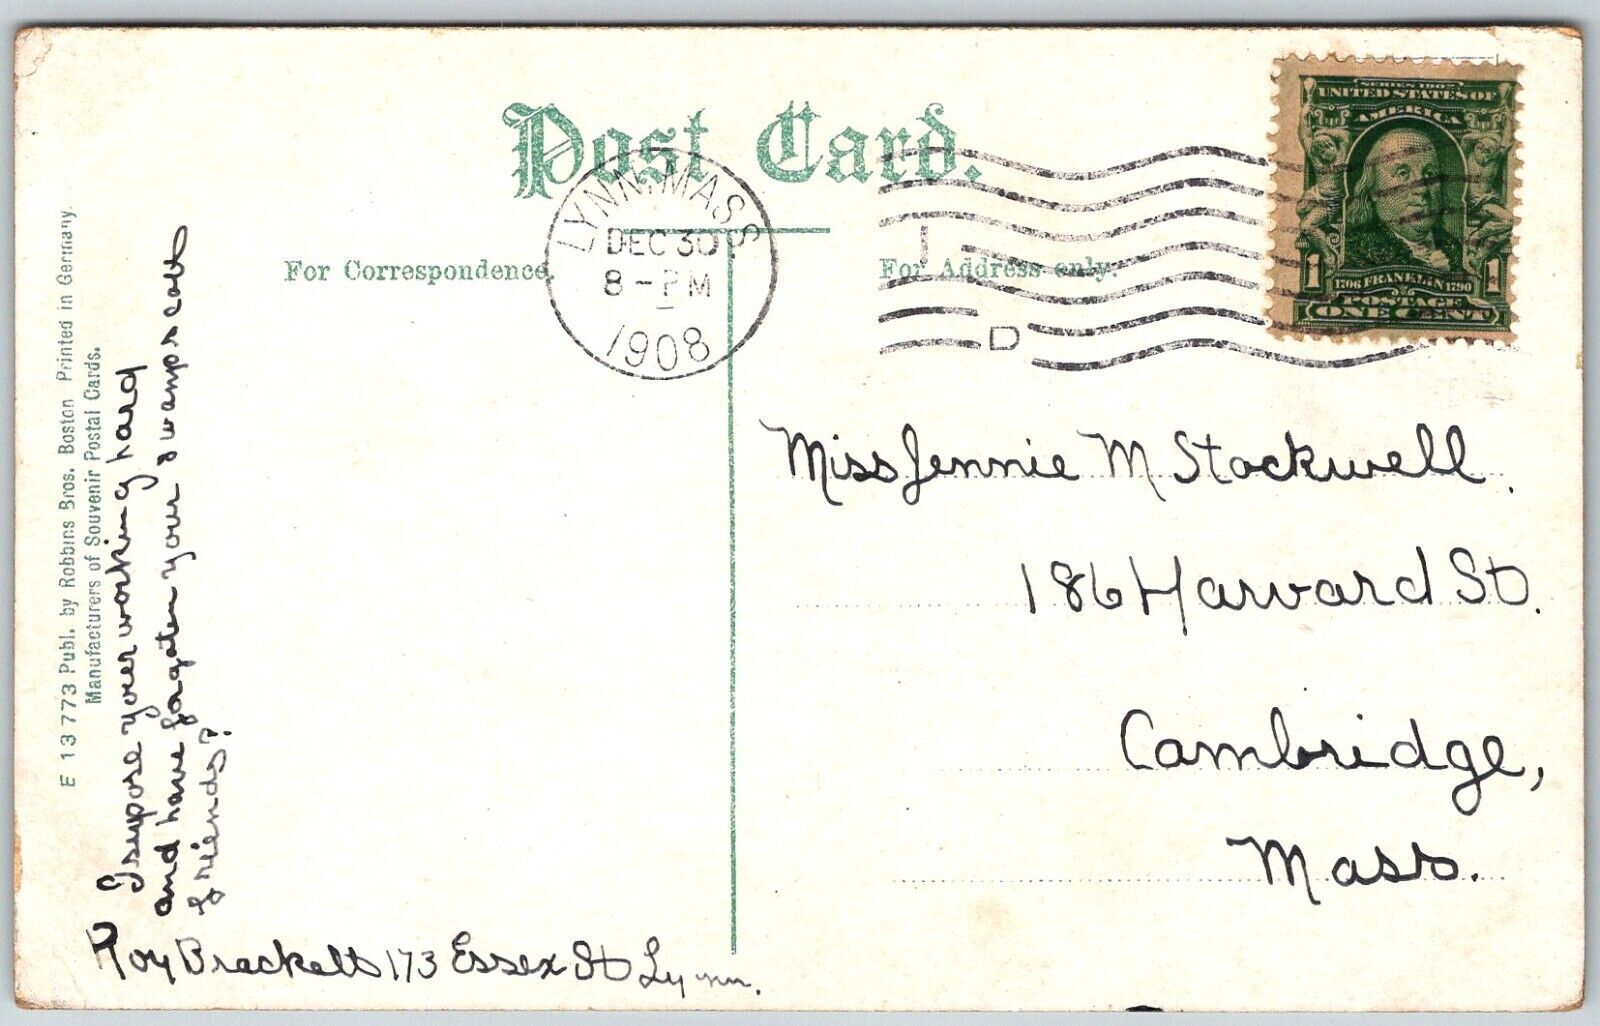 Post Card.
For Correspondence.
For Address only.
LYNN, MASS
DEC 30
8-PM
1908
D
SERIES 1902
UNITED STATES OF
AMERICA
1706 FRANKLIN 1790
1 1
POSTAGE
ONE CENT
Miss Jennie M Stockwell.
186 Harvard St.
Cambridge,
Mass.
E 13 773 Publ. by Robbins Bros. Boston Printed in Germany.
Manufacturers of Souvenir Postal Cards.
I supose your working hard
and have forgoten your swampscott
friends?
Roy Brackett 173 Essex St Lynn.